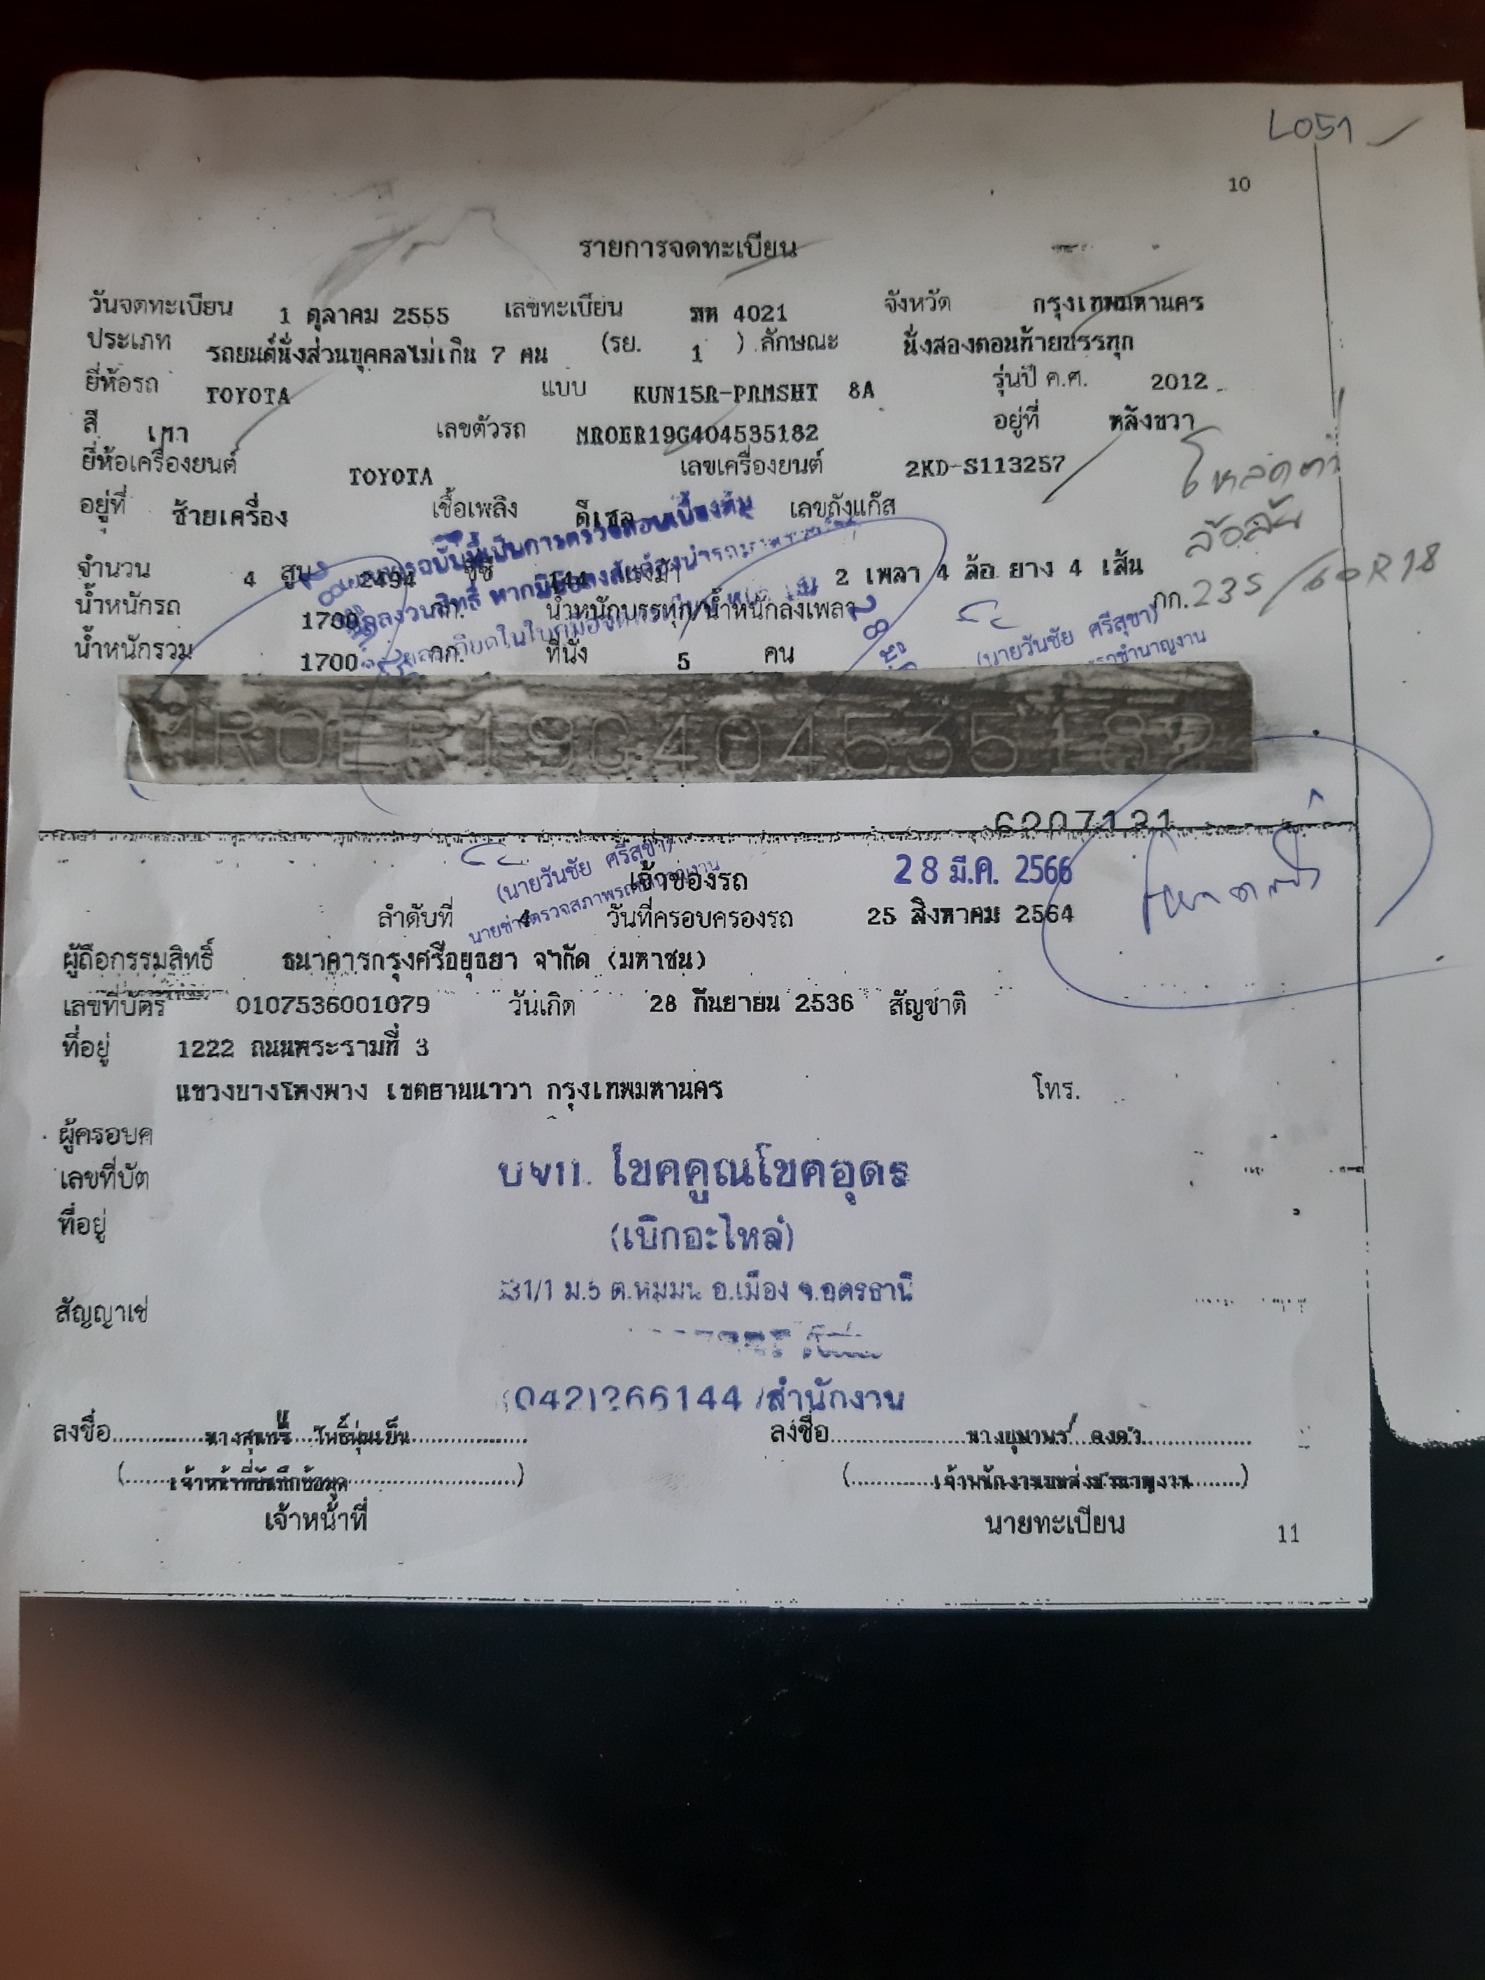 L051
10
รายการจดทะเบียน
วันจดทะเบียน 1 ตุลาคม 2555 เลขทะเบียน 4021 จังหวัด กรุงเทพมหานคร
ประเภท รถยนต์นั่งส่วนบุคคลไม่เกิน 7 คน (รย. 1 ) ลักษณะ นั่งสองตอนท้ายบรรทุก
ยี่ห้อรถ TOYOTA แบบ KUN15R-PRMSHT 8A รุ่นปี ค.ศ. 2012
สี เทา เลขตัวรถ MROER19G404535182 อยู่ที่ หลังขวา
ยี่ห้อเครื่องยนต์ TOYOTA เลขเครื่องยนต์ 2KD-S113257
โหลดต่ำ
อยู่ที่ ซ้ายเครื่อง เชื้อเพลิง ดีเซล เลขถังแก๊ส
ล้อลัน
จำนวน 4 สูบ 2494 ซีซี 144 แรงม้า 2 เพลา 4 ล้อ ยาง 4 เส้น
น้ำหนักรถ 1700 กก. น้ำหนักบรรทุก/น้ำหนักลงเพลา กก.
235/60R18
น้ำหนักรวม 1700 กก. ที่นั่ง 5 คน
(นายวันชัย ศรีสุขา)
MROER19G404535182
6207131
(นายวันชัย ศรีสุขา)
นายช่างตรวจสภาพรถชำนาญงาน
เจ้าของรถ
28 มี.ค. 2566
โหลดเตี้ย
ลำดับที่ 4 วันที่ครอบครองรถ 25 สิงหาคม 2564
ผู้ถือกรรมสิทธิ์ ธนาคารกรุงศรีอยุธยา จำกัด (มหาชน)
เลขที่บัตร 0107536001079 วันเกิด 28 กันยายน 2536 สัญชาติ
ที่อยู่ 1222 ถนนพระรามที่ 3
แขวงบางโพงพาง เขตยานนาวา กรุงเทพมหานคร โทร.
ผู้ครอบค
เลขที่บัต
ที่อยู่
บจก. โชคคูณโชคอุดร
(เบิกอะไหล่)
331/1 ม.5 ต.หมูม่น อ.เมือง จ.อุดรธานี
สัญญาเช่
(042)266144 /สำนักงาน
ลงชื่อ นางสุนทรี โพธิ์พุ่มเย็น
ลงชื่อ นางยุพาพร
(เจ้าหน้าที่บันทึกข้อมูล)
(เจ้าพนักงานขนส่งชำนาญงาน)
เจ้าหน้าที่
นายทะเบียน
11